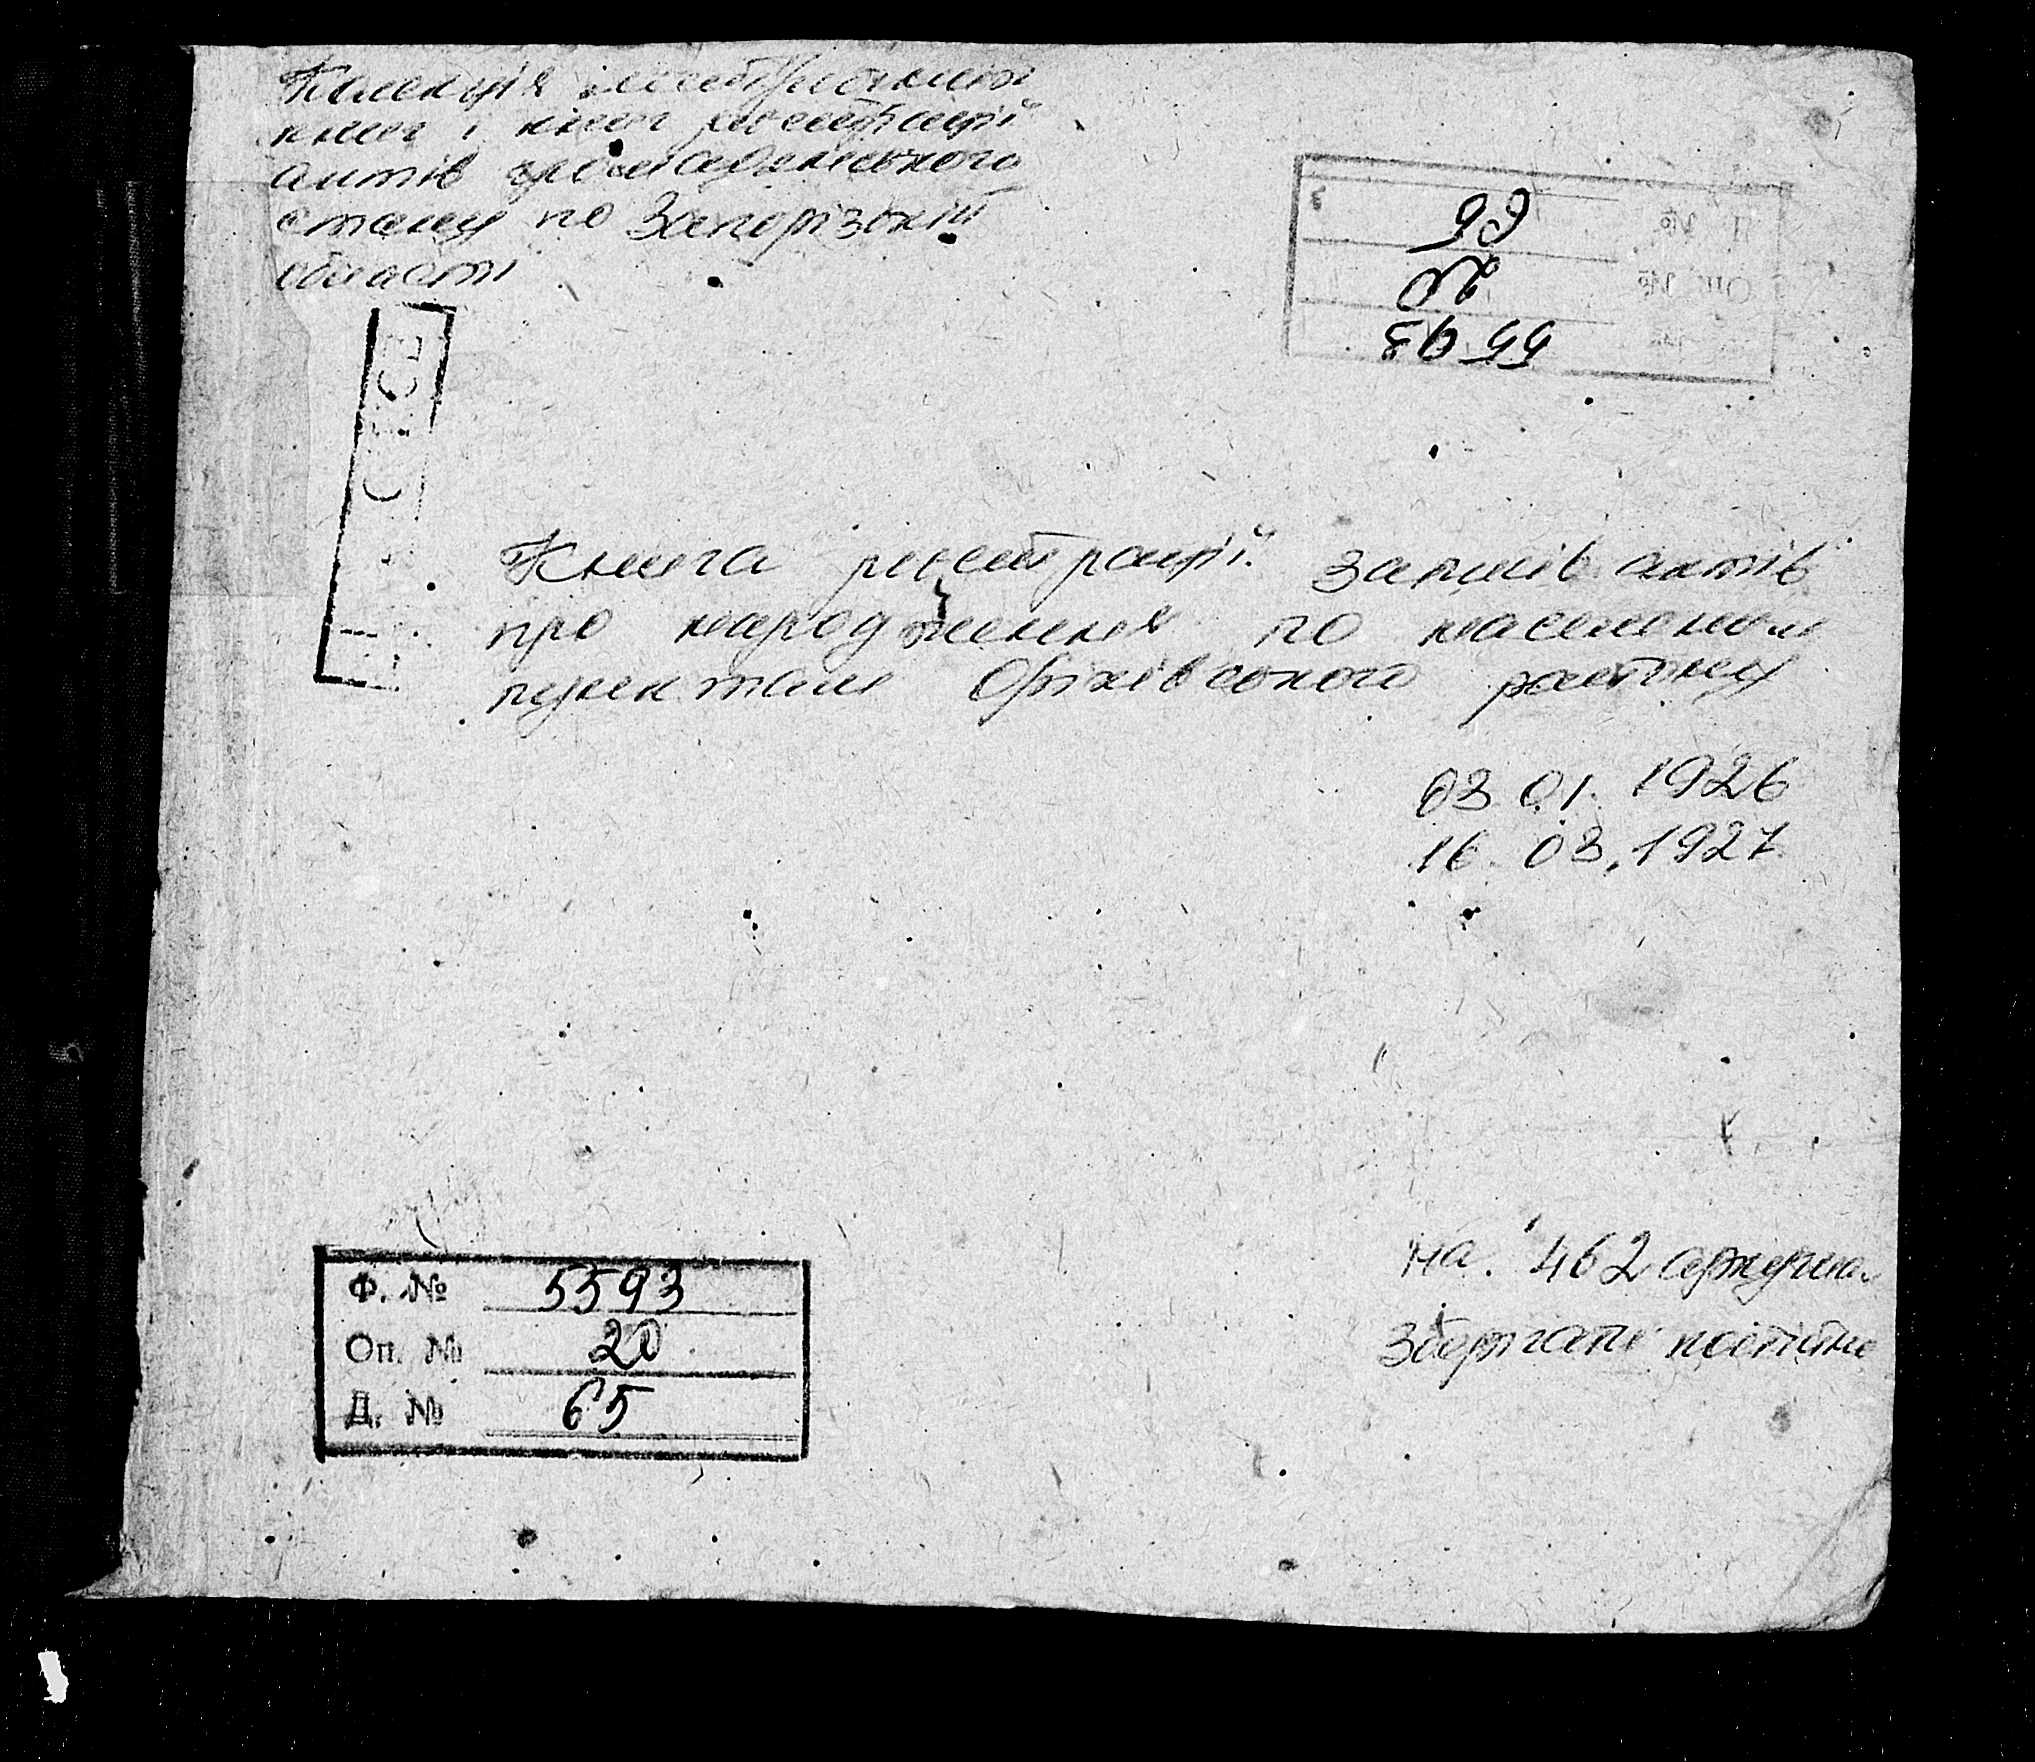 Колекція метричних
книг і книг реєстрації
актів громадянського
стану по Запорізькій
області
65
20
5593
Книга реєстрації записів актів
про народження по населеним
пунктам Оріхівського району
03 01. 1926
16. 03. 1927
на 462 аркушах
Зберігати постійно
Ф. № 5593
Оп. № 20
Д. № 65